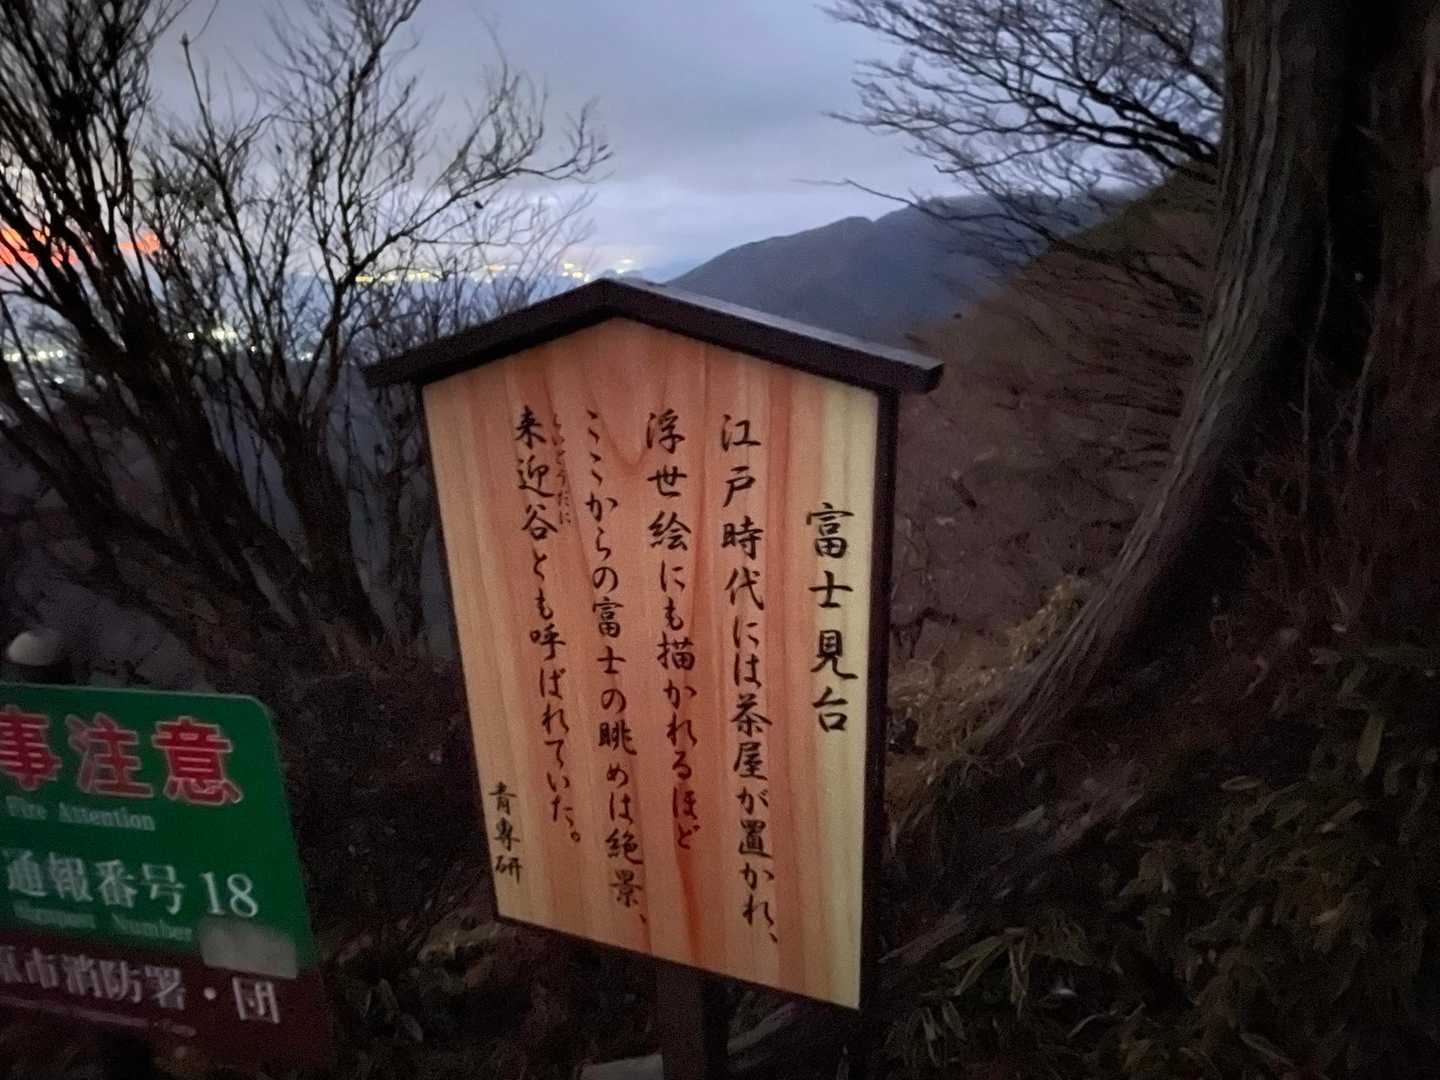 富士見台
江戸時代には茶屋が置かれ、
浮世絵にも描かれるほど
ここからの富士の眺めは絶景、
らいごうだに
来迎谷とも呼ばれていた。
青専研
事注意
Fire Attention
通報番号 18
Number
原市消防署・団